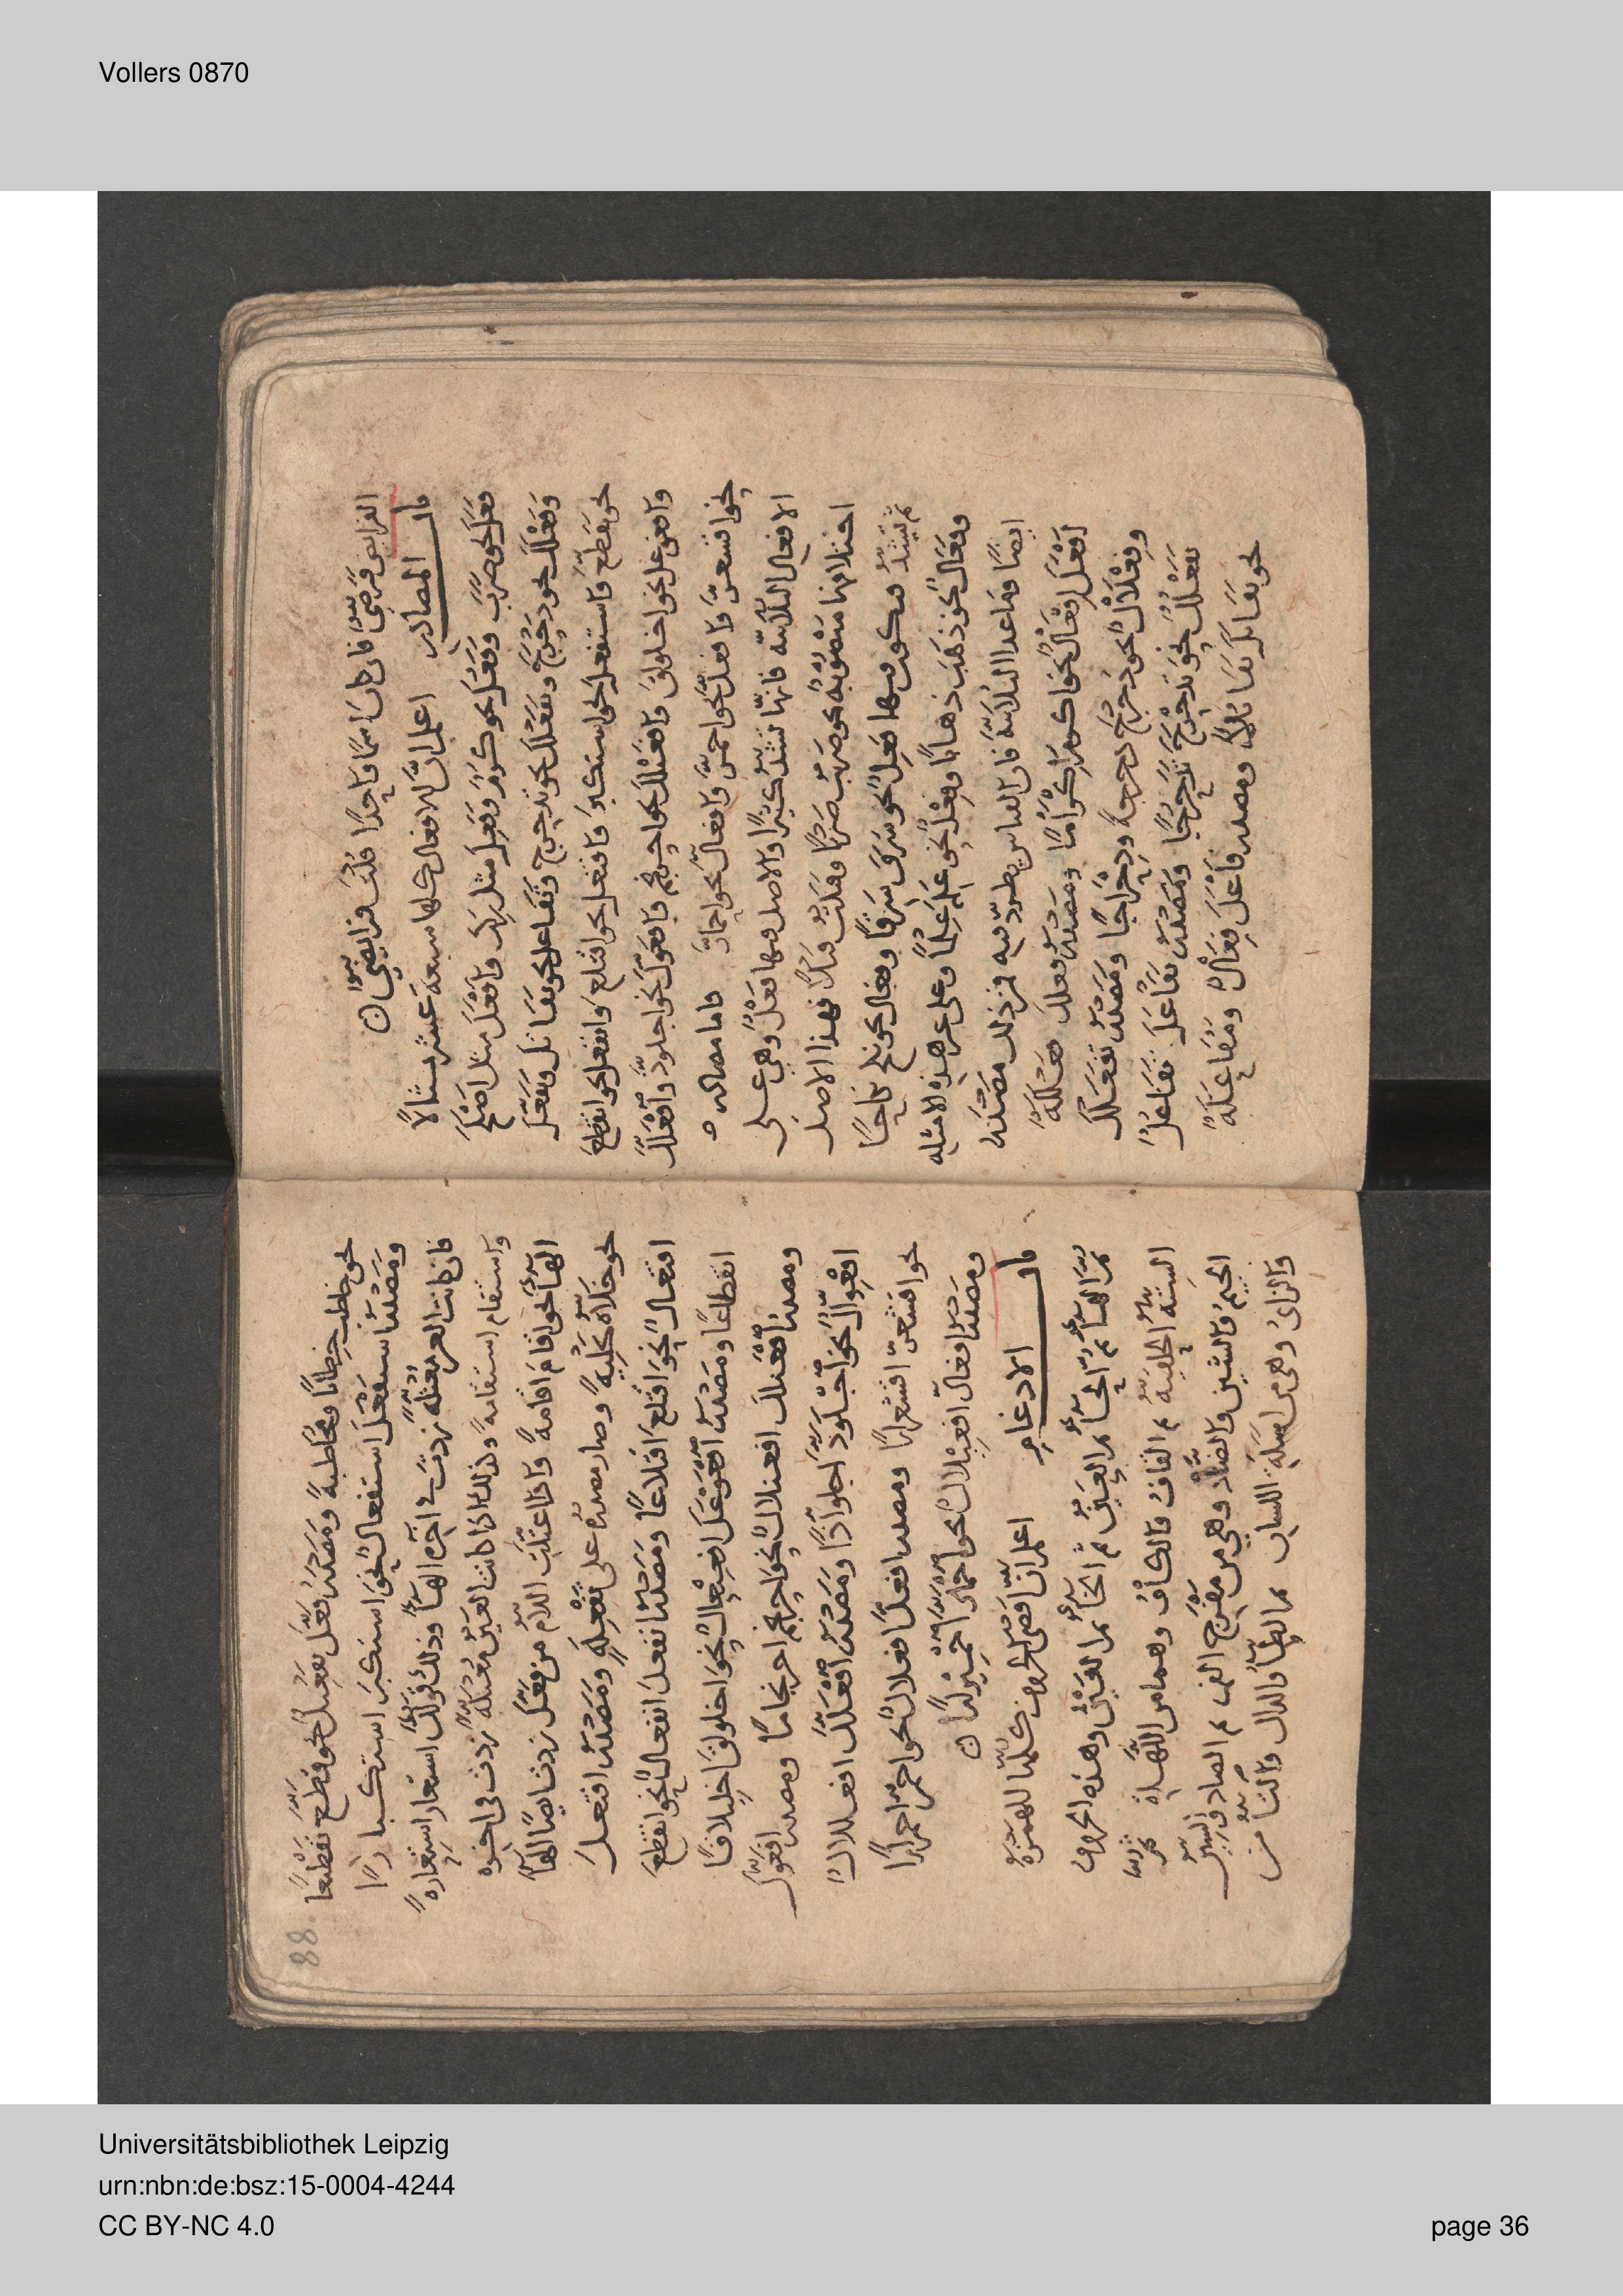 Vollers 0870
الفرايض فَرَضِيٌّ فان كان اسمًا واحدًا قلت فرايضيٌّ
باب المصادر اعلم انَّ الافعال كلها سبعة عشر مثالًا
فَعَلَ نحو ضَرَبَ وفَعُلَ نحو كرُمَ وفَعِلَ مثل وافْعَلَ مثل اصْلَحَ
وفَعْلَلَ نحو دَحْرَجَ وتفعلل نحو تدحرج وتَفَاعل نحو تقاتل وتفَعَّل
نحو تقطّع واستفعل نحو استكبرَ وافتعل نحو اقتلع وانفعل نحو انقطعَ
وافعوعل نحو اخلولقَ وافعنلل نحو احرنجم وافعوّل نحو اجلوّذ وافْعَلَلَّ
نحو اقشعرّ وافعلّ نحو احمرّ وافعالّ نحو احمارّ فاما مصادر
الافعال الثلاثيّة فانّها تشذّ كثيرًا والاصل فيها فَعْلٌ وهي على
اختلافها منصوبةٌ نحو ضربتُ ضربًا وقتلتُ قتلًا فهذا الاصل
ثم تشذُّ فتكون فيها فَعِلٌ نحو سَرَقَ سَرِقًا وفعال نحو نكح نكاحًا
وفَعَالٌ نحو ذهَبَ ذهابًا وفِعْلٌ نحو عَلِمَ عِلمًا وعلى غير هذه الامثله
ايضًا وما عدا الثلاثيّة فان القياس يطّرد فيه فمن ذلك مصدر
أَفْعَلَ إفعالٌ نحو اكرم إكرامًا ومصدرُ فعلل فعللةٌ
وفِعْلَالٌ نحو دحرج دحرجةً ودِحْراجًا ومصدرُ تفعلل
تفَعْلُلٌ نحو تدحرج تدحرُجًا ومصدرُ تَفَاعَلَ تفَاعُلٌ
نحو تقاتل تقاتلًا ومصدر فاعَلَ فِعَالٌ ومُفَاعَلةٌ
88
نحو خاطب خطابًا ومخاطبةً ومصدر فعَّل تفعيل نحو قطّع تقطيعًا
ومصدر استفعل استفعال نحو استكبر استكبارًا
فان كانت العين معتلّة زدتَ في آخره الهاءَ وذلك قولك استعار استعارةً
واستقام استقامةً وكذلك اذا كانت العين معتلّة زدت في اخره
الهاء نحو اقام اقامةً واذا اعتلّت اللام من فعَّل زدت ايضًا الهاءَ
نحو حلّاه تحليةً وصار مصدره على تفعِلةٍ ومصدر افتعل
افتعال نحو اقتلع اقتلاعًا ومصدر انفعل انفعال نحو انقطع
انقطاعًا ومصدر افعوعل افعيعال نحو اخلولق اخليلاقًا
ومصدر افعنلل افعنلال نحو احرنجم احرنجامًا ومصدر افعوّل
افعوّال نحو اجلوّذ اجلوّاذًا ومصدر افعلَلَّ افعلّالٌ
نحو اقشعرّ ومصدر افعلّ افعلال نحو احمرّ احمرارًا
ومصدر افعالّ افعيلال نحو احمارّ احميرارًا
باب الادغام اعلم انّ اقصى الحروف كلها للهمزة
ثم الهاء ثم الحاء ثم العين ثم الخاء ثم الغين وهذه الحروف
الستة الحلقية ثم القاف والكاف وهما من اللهاة ثم
الجيم والشين والضاد وهي من مفرج الفم ثم الصاد والسين
والزاى وهي من اسلة اللسان ثم الطاء والدال والتاء من
Universitätsbibliothek Leipzig
urn:nbn:de:bsz:15-0004-4244
CC BY-NC 4.0
page 36